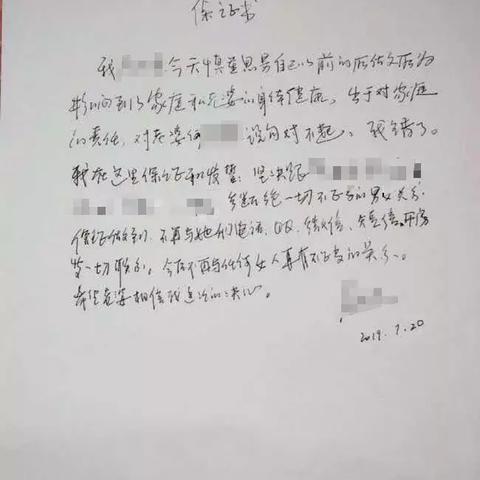 保证书
我 今天慎重思索自己以前的所做所为
影响到了家庭和老婆的身体健康，出于对家庭
的责任，对老婆 说句对不起，我错了。
我在这里保证和发誓：坚决跟
绝一切不正当的男女关系，
保证做到，不再与她们电话、QQ、微信、短信、开房
等一切联系。今后不再与任何女人再有不正当的关系。
希望老婆相信我这次的决心。
2019.7.20